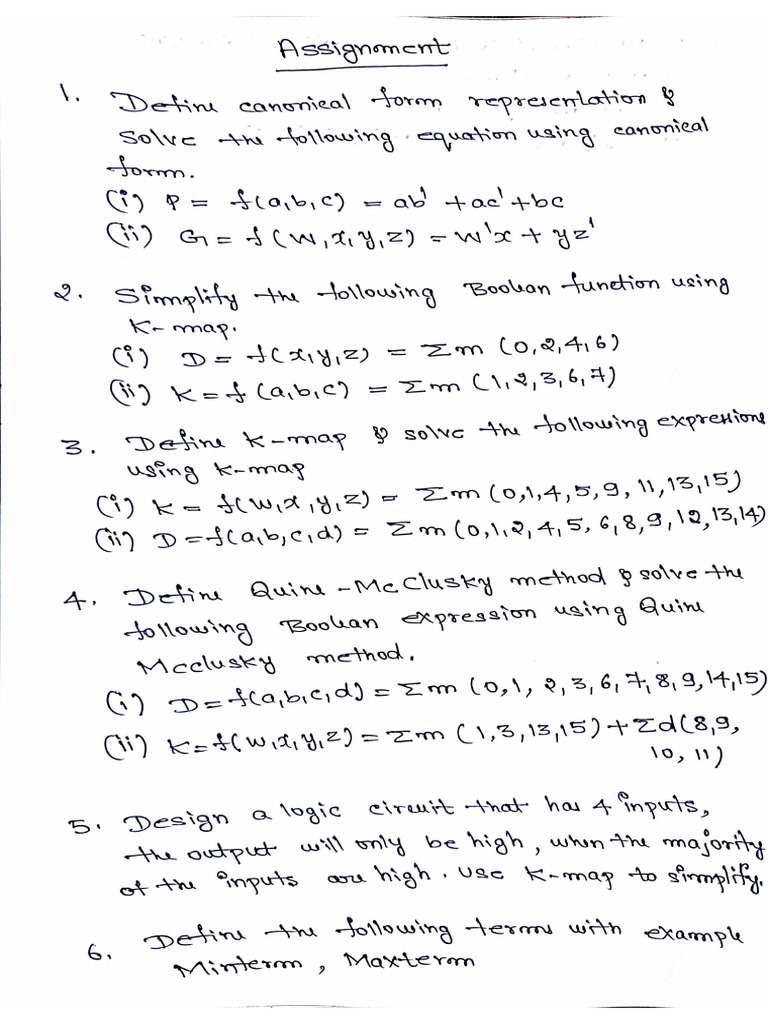 Assignment
1. Define canonical form representation &
solve the following equation using canonical
form.
(i) P = f(a,b,c) = ab' + ac' + bc
(ii) G = f(w,x,y,z) = w'x + yz'
2. Simplify the following Boolean function using
K-map.
(i) D = f(x,y,z) = Σm (0,2,4,6)
(ii) K = f(a,b,c) = Σm (1,2,3,6,7)
3. Define K-map & solve the following expressions
using K-map
(i) K = f(w,x,y,z) = Σm (0,1,4,5,9,11,13,15)
(ii) D = f(a,b,c,d) = Σm (0,1,2,4,5,6,8,9,12,13,14)
4. Define Quine-McClusky method & solve the
following Boolean expression using Quine
Mcclusky method.
(i) D = f(a,b,c,d) = Σm (0,1,2,3,6,7,8,9,14,15)
(ii) K = f(w,x,y,z) = Σm (1,3,13,15) + Σd(8,9,
10,11)
5. Design a logic circuit that has 4 inputs,
the output will only be high, when the majority
of the inputs are high. use K-map to simplify.
6. Define the following terms with example
Minterm, Maxterm